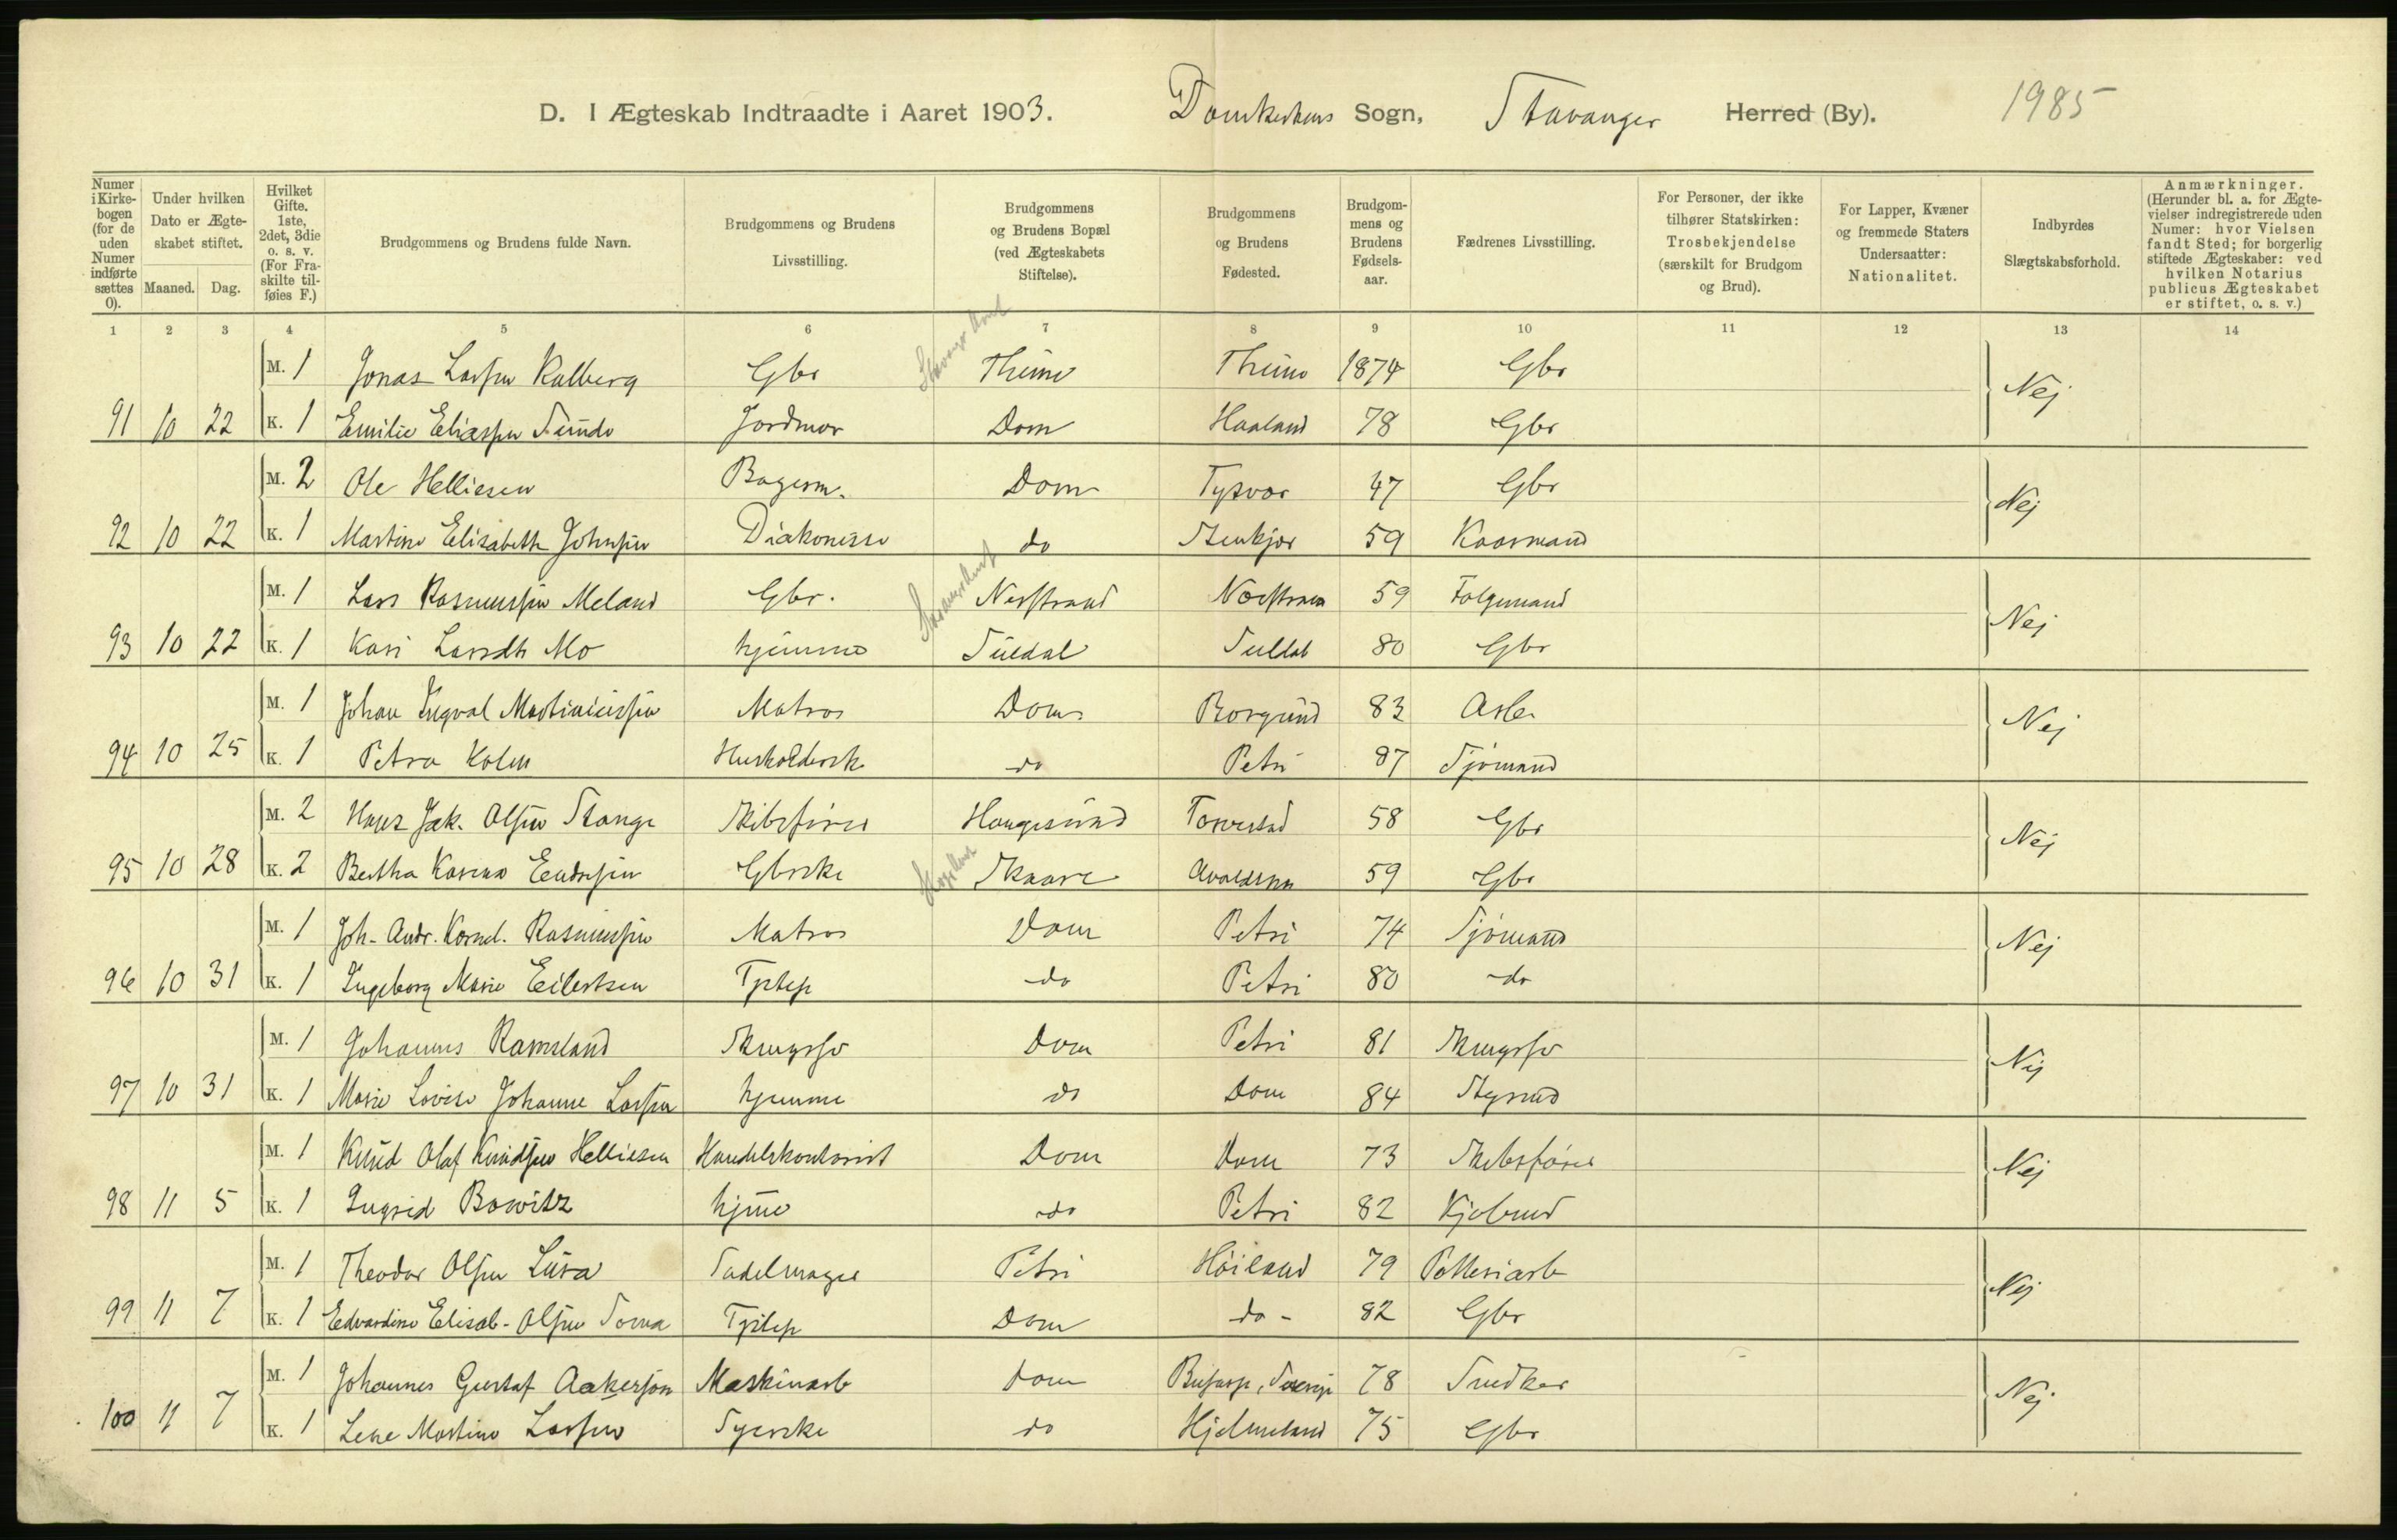 D. I Ægteskab Indtraadte i Aaret 1903. Domkirkens Sogn, Stavanger Herred (By). 1985
Numer i Kirkebogen (for de uden Numer indførte sættes 0).
Under hvilken Dato er Ægteskabet stiftet.
Maaned. Dag.
Hvilket Gifte. 1ste, 2det, 3die o. s. v. (For Fraskilte tilføies F.)
Brudgommens og Brudens fulde Navn.
Brudgommens og Brudens Livsstilling.
Brudgommens og Brudens Bopæl (ved Ægteskabets Stiftelse).
Brudgommens og Brudens Fødested.
Brudgommens og Brudens Fødselsaar.
Fædrenes Livsstilling.
For Personer, der ikke tilhører Statskirken: Trosbekjendelse (særskilt for Brudgom og Brud).
For Lapper, Kvæner og fremmede Staters Undersaatter: Nationalitet.
Indbyrdes Slægtskabsforhold.
Anmærkninger. (Herunder bl. a. for Ægtevielser indregistrerede uden Numer: hvor Vielsen fandt Sted; for borgerlig stiftede Ægteskaber: ved hvilken Notarius publicus Ægteskabet er stiftet, o. s. v.)
1 2 3 4 5 6 7 8 9 10 11 12 13 14
M. 1 Jonas Larsen Kalberg Gbr Thime Thime 1874 Gbr Nej
91 10 22 K. 1 Emilie Eliassen Sunde Jordmor Dom Haaland 78 Gbr
M. 2 Ole Helliesen Bagerm. Dom Tysvær 47 Gbr Nej
92 10 22 K. 1 Martine Elisabeth Johnsen Diakonisse do Stenkjær 59
M. 1 Lars Rasmussen Meland Gbr. Nerstrand Nerstrand 59 Folgemand Nej
93 10 22 K. 1 Kari Larsdtr Mo hjemme Suldal Suldal 80 Gbr
M. 1 Johan Ingval Martiniussen Matros Dom Borgund 83 Arb. Nej
94 10 25 K. 1 Petra Kolen Husholdersk do Petri 87 Sjömand
M. 2 Hans Jak. Olsen Stange Skibsförer Haugesund Torvestad 58 Gbr Nej
95 10 28 K. 2 Bertha Karina Endresen Gbrske Skaare Avaldsnes 59 Gbr
M. 1 Joh. Andr. Kornel. Rasmussen Matros Dom Petri 74 Sjömand Nej
96 10 31 K. 1 Ingeborg Marie Eilertsen Tjstep do Petri 80 do
M. 1 Johannes Ramsland Dom Petri 81 Nej
97 10 31 K. 1 Marie Lovise Johanne Larsen hjemme do Dom 84 Styrmd
M. 1 Knud Olaf Knudsen Helliesen Handelskontorist Dom Dom 73 Skibsförer Nej
98 11 5 K. 1 Ingrid Bowitz hjme do Petri 82 Kjøbmd
M. 1 Theodor Olsen Lura Sadelmager Petri Höiland 79 Potteriarb Nej
99 11 7 K. 1 Edvardine Elisab. Olsen Soma Tjstep Dom do - 82 Gbr
M. 1 Johannes Gustaf Aakerson Maskinarb Dom 78 Snedker Nej
100 11 7 K. 1 Lene Martine Larsen Syerske do Hjelmeland 75 Gbr